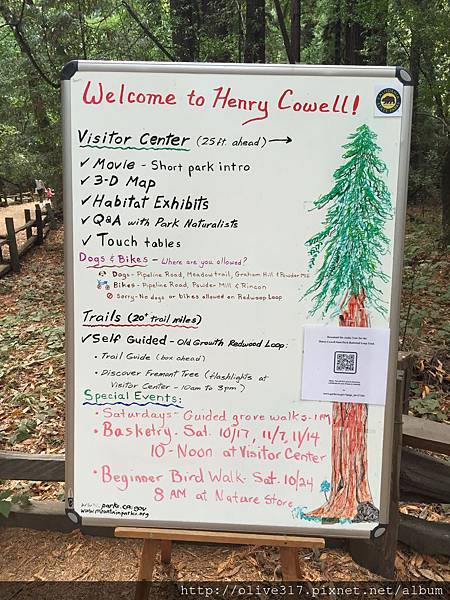 Welcome to Henry Cowell!
Visitor Center (25 ft. ahead) →
✓ Movie - Short park intro
✓ 3-D Map
✓ Habitat Exhibits
✓ Q&A with Park Naturalists
✓ Touch tables
Dogs & Bikes - Where are you allowed?
Dogs - Pipeline Road, Meadow trail, Graham Hill & Powder Mill
Bikes - Pipeline Road, Powder Mill & Rincon
Sorry - No dogs or bikes allowed on Redwood Loop
Trails (20+ trail miles)
✓ Self Guided - Old Growth Redwood Loop:
• Trail Guide (box ahead)
• Discover Fremont Tree (flashlights at
Visitor Center - 10am to 3pm)
Special Events:
• Saturdays - Guided grove walks - 1 PM
• Basketry - Sat. 10/17, 11/7, 11/14
10 - Noon at Visitor Center
• Beginner Bird Walk - Sat. 10/24
8 AM at Nature Store
www.parks.ca.gov
www.mountainparks.org
http://olive317.pixnet.net/album